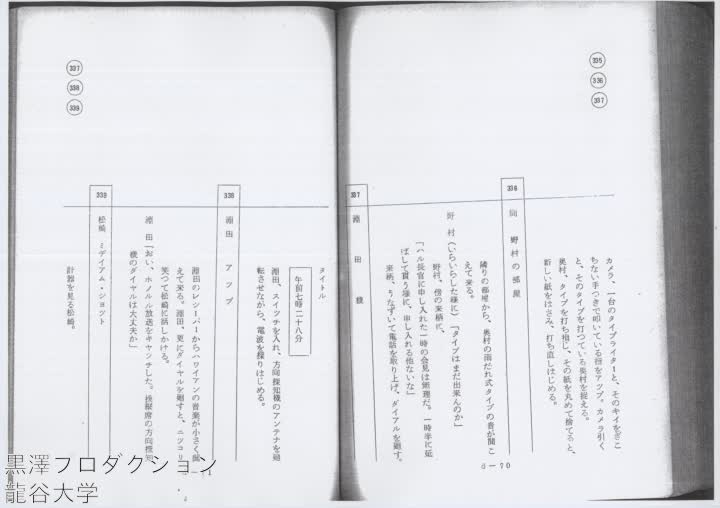 335
336
337
カメラ、一台のタイプライターと、そのキイをぎこ
ちない手つきで叩いている指をアップ。カメラ引く
と、そのタイプを打つている奥村を捉える。
奥村、タイプを打ち損じ、その紙を丸めて捨てると、
新しい紙をはさみ、打ち直しはじめる。
336
同 野村の部屋
隣りの部屋から、奥村の雨だれ式タイプの音が聞こ
えて来る。
野村(いらいらした様に)「タイプはまだ出来んのか」
野村、傍の来栖に、
「ハル長官に申し入れた一時の会見は無理だ。一時半に延
ばして貰う様に、申し入れる他ないな」
来栖、うなずいて電話を取り上げ、ダイアルを廻す。
6—70
337
338
339
337
淵田機
タイトル
午前七時二十八分
淵田、スイツチを入れ、方向探知機のアンテナを廻
転させながら、電波を探りはじめる。
338
淵田 アツプ
淵田のレシーバーからハワイアンの音楽が小さく聞
えて来る。淵田、更にダイヤルを廻すと、ニツコリ
笑つて松崎に話しかける。
淵田「おい、ホノルル放送をキャッチした。操縦席の方向探知
機のダイヤルは大丈夫か」
339
松崎 ミデイアム・ショツト
計器を見る松崎。
黒澤プロダクション
龍谷大学